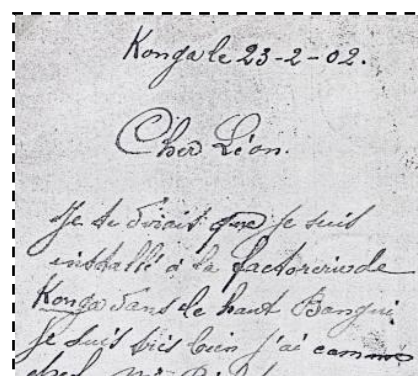 Konga le 23-2-02.
Cher Léon.
Je te dirait que je suit
installé à la factorerie de
Konga dans le haut Bangui
Je suis très bien j'ai comme
chef Mr